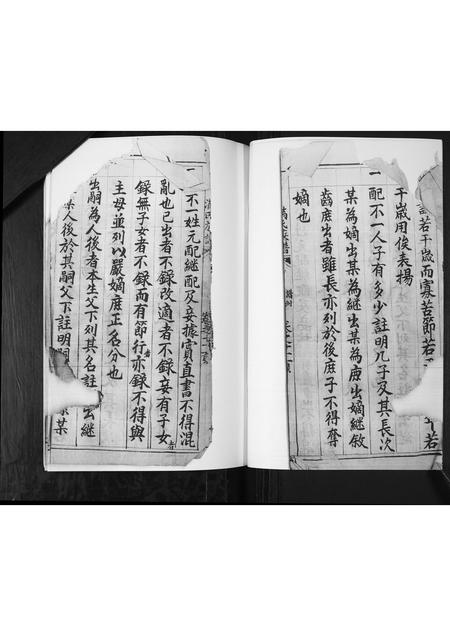 若干歲而寡苦節若
干歲用俟表揚
一配不一人子有多少註明几子及其長次
某為嫡出某為繼出某為庶出嫡繼敘
齒庶出者雖長亦列於後庶子不得奪
嫡也
一不一姓元配繼配及妾據實直書不得混
亂也已出者不錄改適者不錄妾有子女者
錄無子女者不錄而有節行者亦錄不得與
主母並列以嚴嫡庶正名分也
出嗣為人後者本生父下列其名註出繼
某人後於其嗣父下註明嗣某